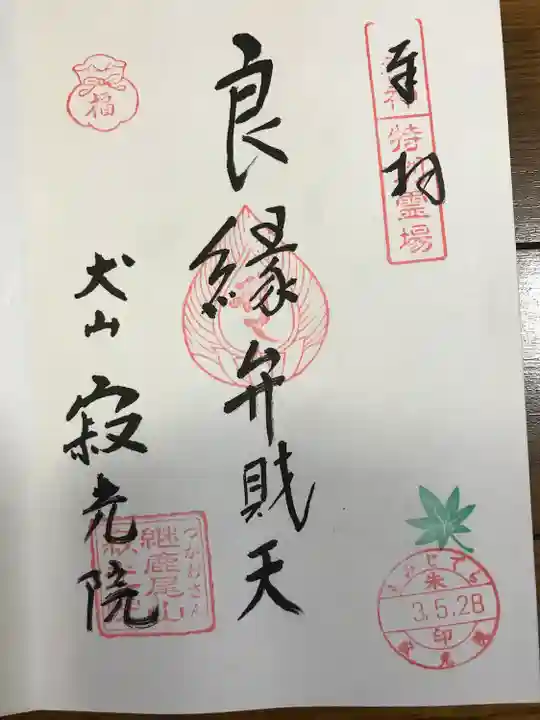 奉拝
特別霊場
良縁弁財天
犬山
寂光院
福
つがおさん
継鹿尾山
朱
3.5.28
印